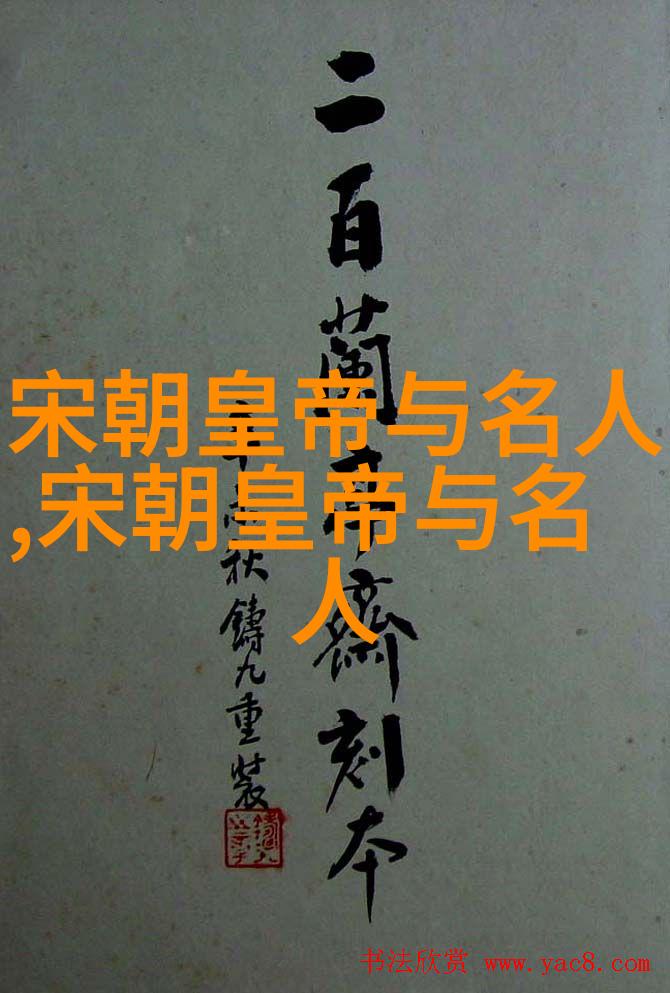 二百蘭亭齋刻本
秋鑄九重裝
宋朝皇帝与名人
,宋朝皇帝与名
人
书法欣赏 www.yac8.com